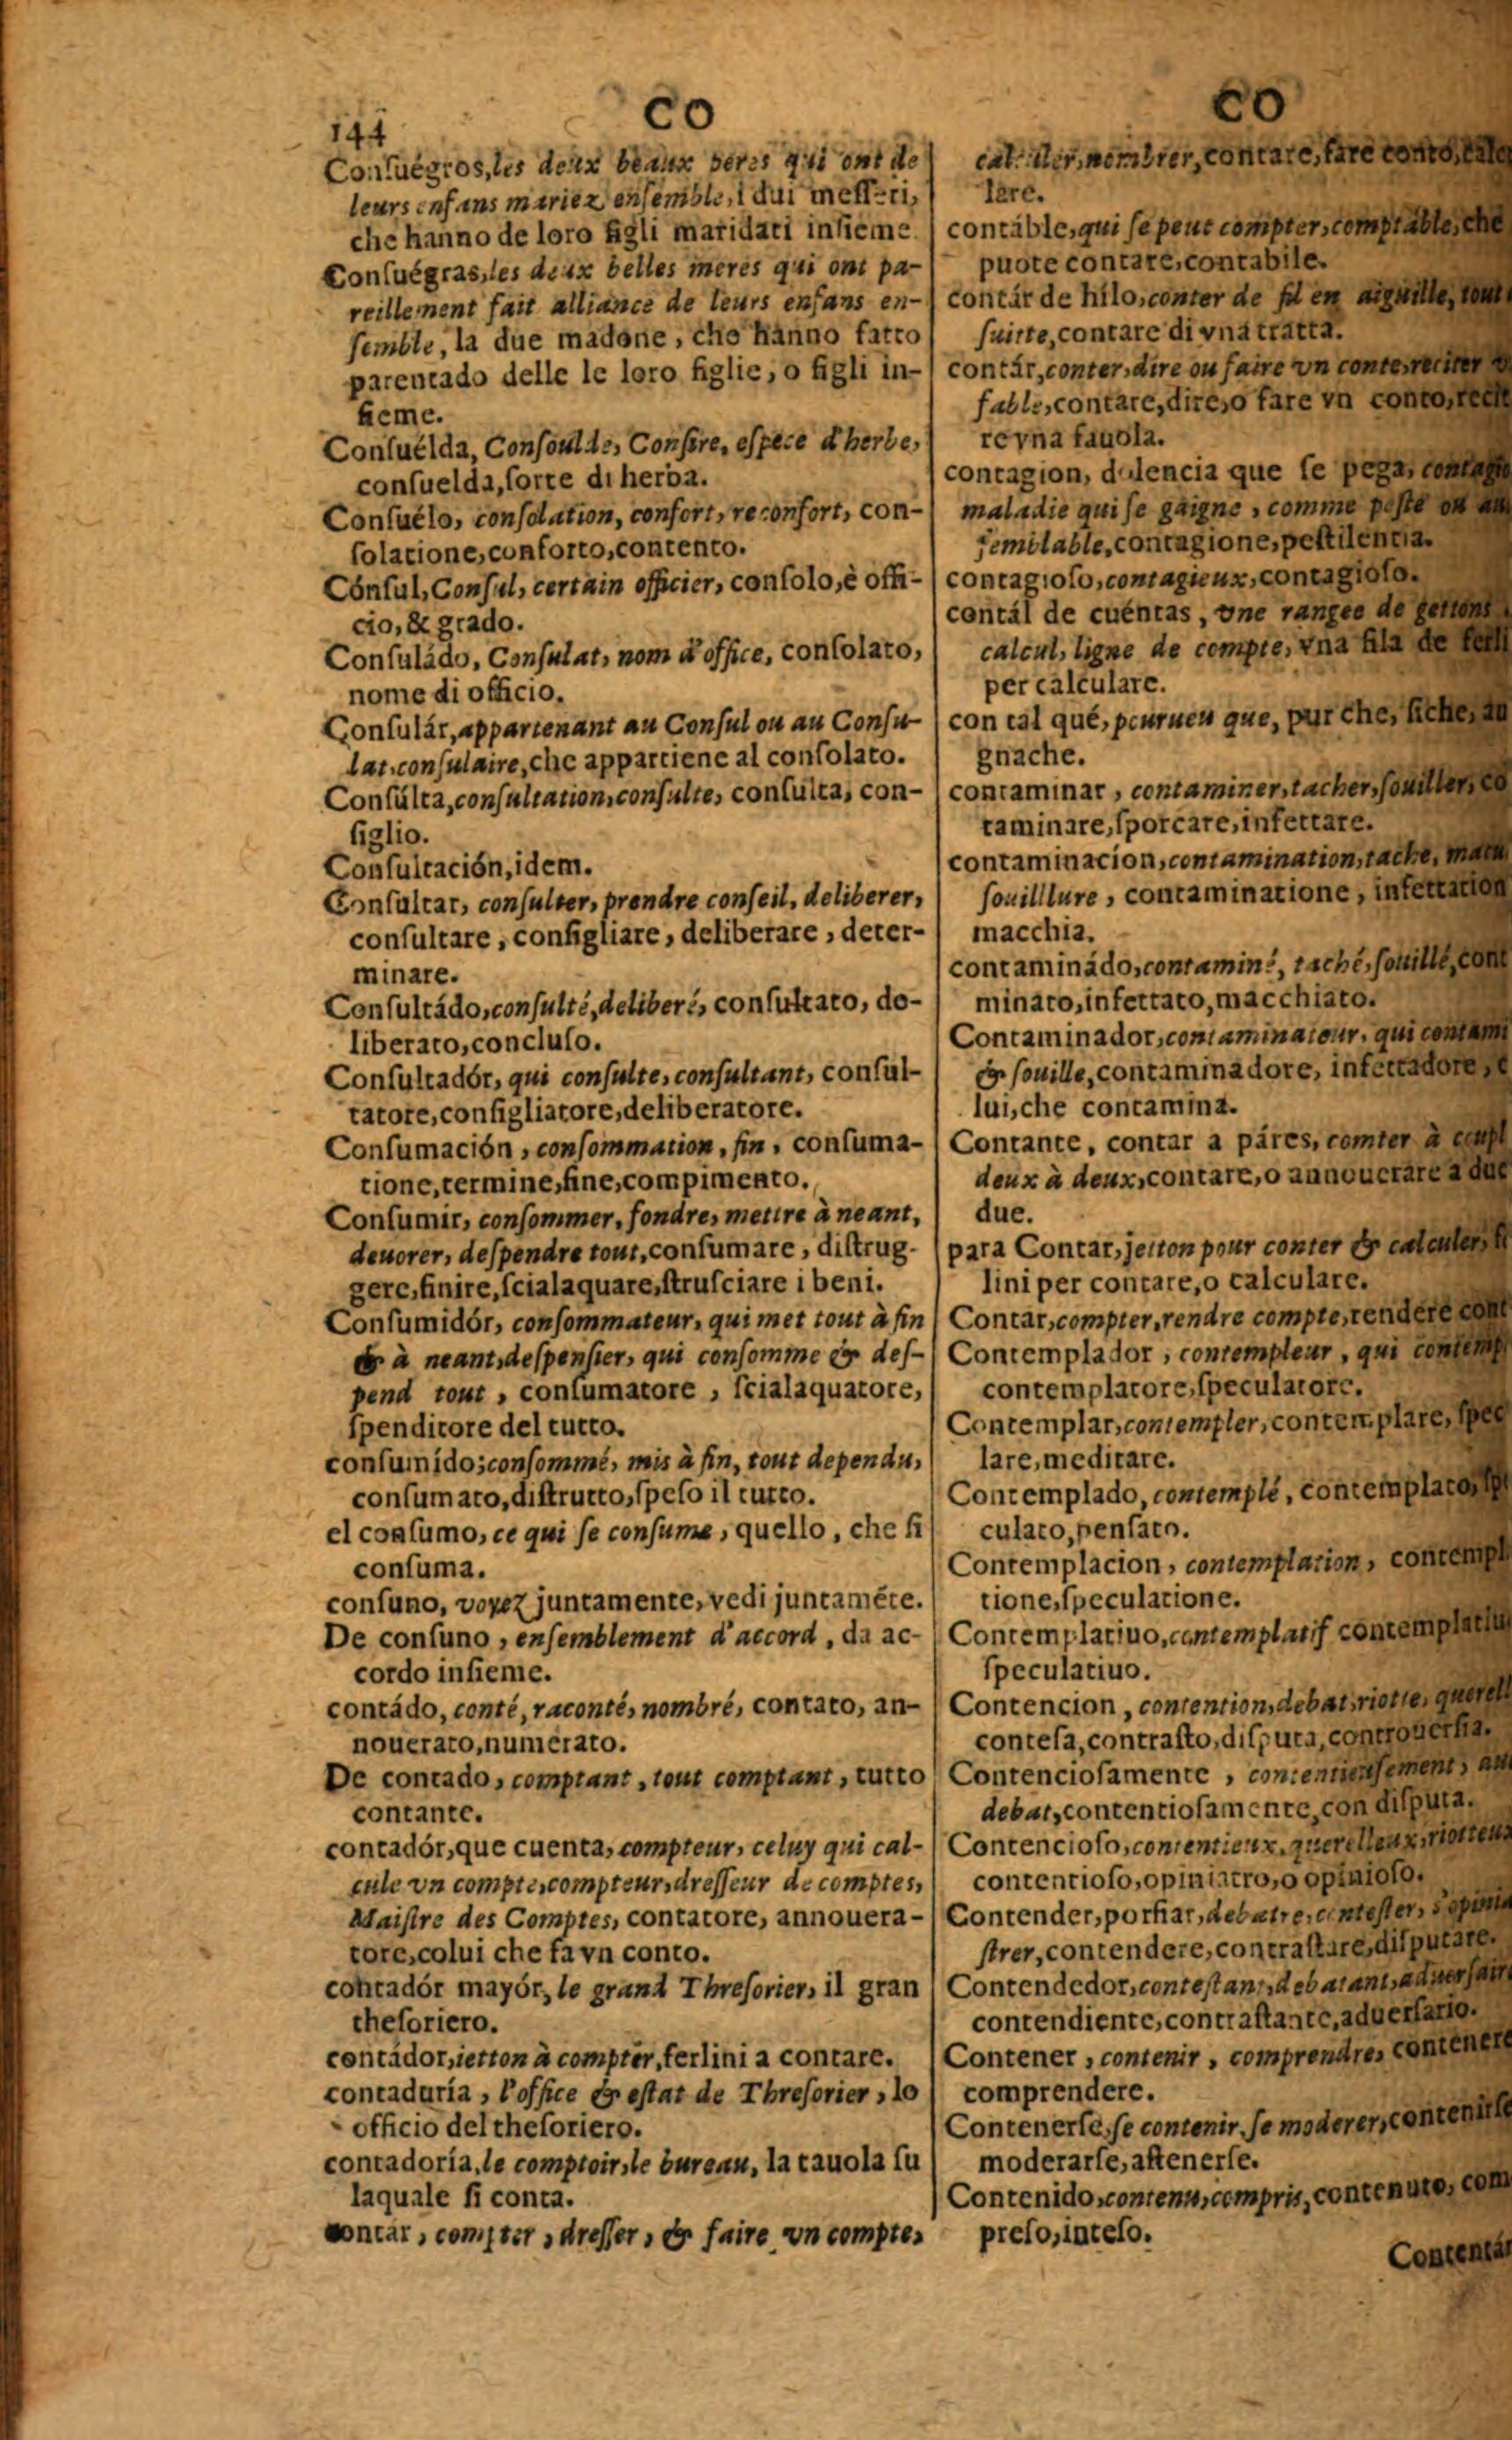 144
CO
Conſuégros,les deux beaux peres qui ont de
leurs enfans mariez enſemble,i dui meſſeri,
che hanno de loro figli maridati inſieme
Conſuégras,les deux belles meres qui ont pa-
reillement fait alliance de leurs enfans en-
ſemble, la due madone, che hanno fatto
parentado delle le loro figlie, o figli in-
ſieme.
Conſuélda, Conſoulde, Conſire, eſpece d'herbe,
conſuelda,ſorte di herba.
Conſuélo, conſolation, confort, reconfort, con-
ſolatione,conforto,contento.
Cónſul,Conſul, certain officier, conſolo,è offi-
cio,& grado.
Conſuládo, Conſulat, nom d'office, conſolato,
nome di officio.
Conſulár,appartenant au Conſul ou au Conſu-
lat,conſulaire,che appartiene al conſolato.
Conſúlta,conſultation,conſulte, conſulta, con-
ſiglio.
Conſultación,idem.
Conſultar, conſulter, prendre conſeil, deliberer,
conſultare, conſigliare, deliberare, deter-
minare.
Conſultádo,conſulté,deliberé, conſultato, do-
liberato,concluſo.
Conſultadór, qui conſulte, conſultant, conſul-
tatore,conſigliatore,deliberatore.
Conſumación, conſommation, fin, conſuma-
tione,termine,fine,compimento.
Conſumir, conſommer, fondre, mettre à neant,
deuorer, deſpendre tout,conſumare, diſtrug-
gere,finire,ſcialaquare,ſtruſciare i beni.
Conſumidór, conſommateur, qui met tout à fin
& à neant,deſpenſier, qui conſomme & deſ-
pend tout, conſumatore, ſcialaquatore,
ſpenditore del tutto.
conſumído;conſommé, mis à fin, tout dependu,
conſumato,diſtrutto,ſpeſo il tutto.
el conſumo, ce qui ſe conſume, quello, che ſi
conſuma.
conſuno, voyez juntamente, vedi juntaméte.
De conſuno, enſemblement d'accord, da ac-
cordo inſieme.
contádo, conté, raconté, nombré, contato, an-
nouerato,numerato.
De contado, comptant, tout comptant, tutto
contante.
contadór,que cuenta, compteur, celuy qui cal-
cule vn compte,compteur,dreſſeur de comptes,
Maiſtre des Comptes, contatore, annouera-
tore,colui che fa vn conto.
contadór mayór, le grand Threſorier, il gran
theſoriero.
contádor,ietton à compter,ferlini a contare.
contaduría, l'office & eſtat de Threſorier, lo
officio del theſoriero.
contadoría,le comptoir,le bureau, la tauola ſu
laquale ſi conta.
contar, compter, dreſſer, & faire vn compte,
CO
calculer,nombrer,contare,fare conto,calcu
lare.
contáble,qui ſe peut compter,comptable,che
puote contare,contabile.
contár de hilo,conter de fil en aiguille, tout
ſuitte,contare di vna tratta.
contár,conter,dire ou faire vn conte,reciter
fable,contare,dire,o fare vn conto,recit
re vna fauola.
contagion, dolencia que ſe pega, contagio
maladie qui ſe gaigne, comme peſte ou au
ſemblable,contagione,peſtilentia.
contagioſo,contagieux,contagioſo.
contál de cuéntas, vne rangee de gettons
calcul, ligne de compte, vna fila de ferli
per calculare.
con tal qué,pourueu que, pur che, ſiche, au
gnache.
contaminar, contaminer,tacher,ſouiller, cō
taminare,ſporcare,infettare.
contaminacíon,contamination,tache, macu
ſouilllure, contaminatione, infettation
macchia.
contaminádo,contaminé, taché,ſouillé,cont
minato,infettato,macchiato.
Contaminador,contaminateur, qui contami
& ſouille,contaminadore, infettadore, c
lui,che contamina.
Contante, contar a páres, comter à coupl
deux à deux,contare,o annouerare a due
due.
para Contar,jetton pour conter & calculer, fi
lini per contare,o calculare.
Contar,compter,rendre compte,rendere cont
Contemplador, contempleur, qui contemp
contemplatore,ſpeculatore.
Contemplar,contempler,contemplare, ſpec
lare,meditare.
Contemplado, contemplé, contemplato, ſpe
culato,penſato.
Contemplacion, contemplation, contempl
tione,ſpeculatione.
Contemplatiuo,contemplatif contemplatiu
ſpeculatiuo.
Contencion, contention,debat,riotte, querell
conteſa,contraſto,diſputa,controuerſia.
Contencioſamente, contentieuſement, au
debat,contentioſamente,con diſputa.
Contencioſo,contentieux,querelleux,riotteux
contentioſo,opiniatro,o opinioſo.
Contender,porfiar,debatre,conteſter, s'opinia
ſtrer,contendere,contraſtare,diſputare.
Contendedor,conteſtant,debatant,aduerſaire
contendiente,contraſtante,aduerſario.
Contener, contenir, comprendre, contenere
comprendere.
Contenerſe,ſe contenir,ſe moderer,contenirſe
moderarſe,aſtenerſe.
Contenido,contenu,compris,contenuto, com
preſo,inteſo.
Contentár